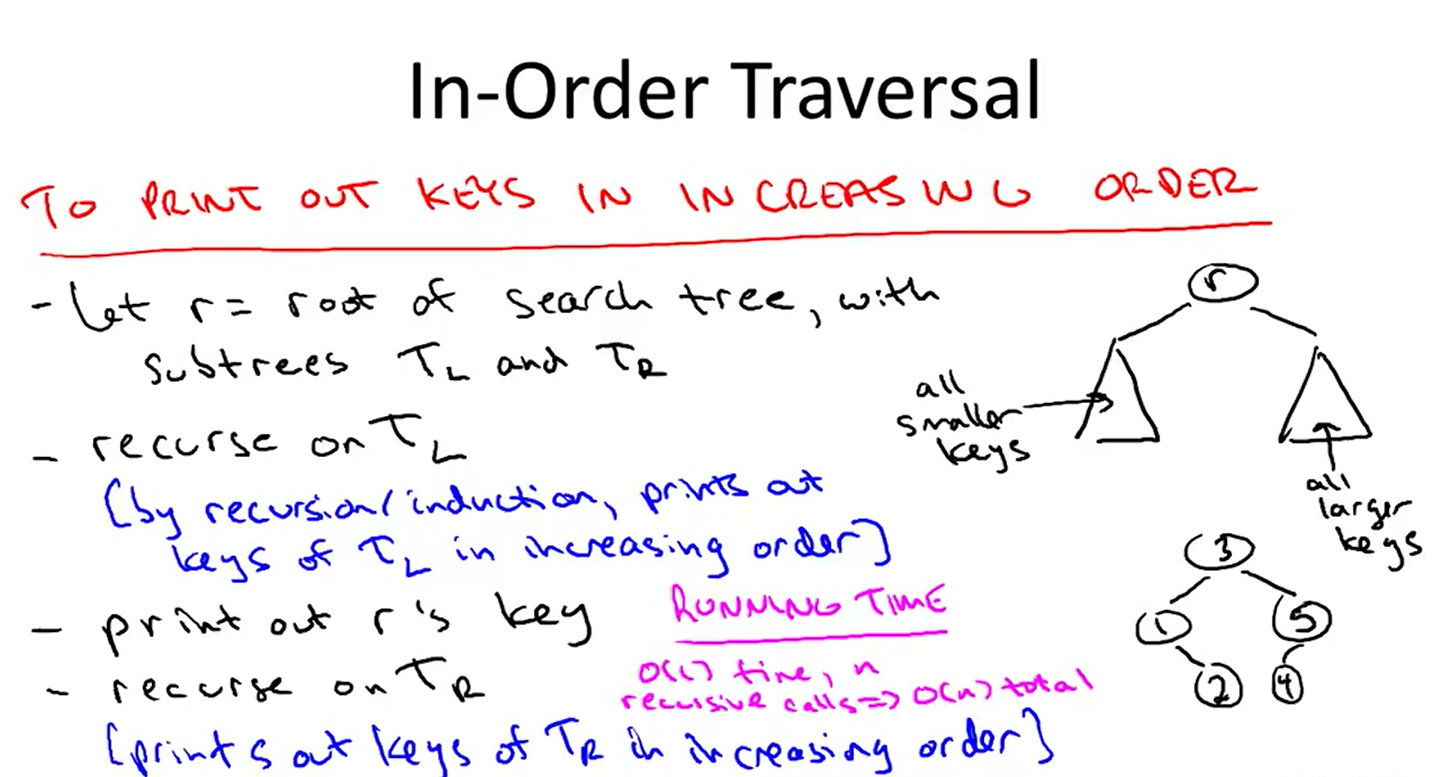 In-Order Traversal
TO PRINT OUT KEYS IN INCREASING ORDER
- Let r = root of search tree, with
subtrees TL and TR
- recurse on TL
[by recursion/induction, prints out
keys of TL in increasing order]
- print out r's key
- recurse on TR
[prints out keys of TR in increasing order]
RUNNING TIME
O(1) time, n
recursive calls => O(n) total
r
all
smaller
keys
all
larger
keys
3
1
5
2
4